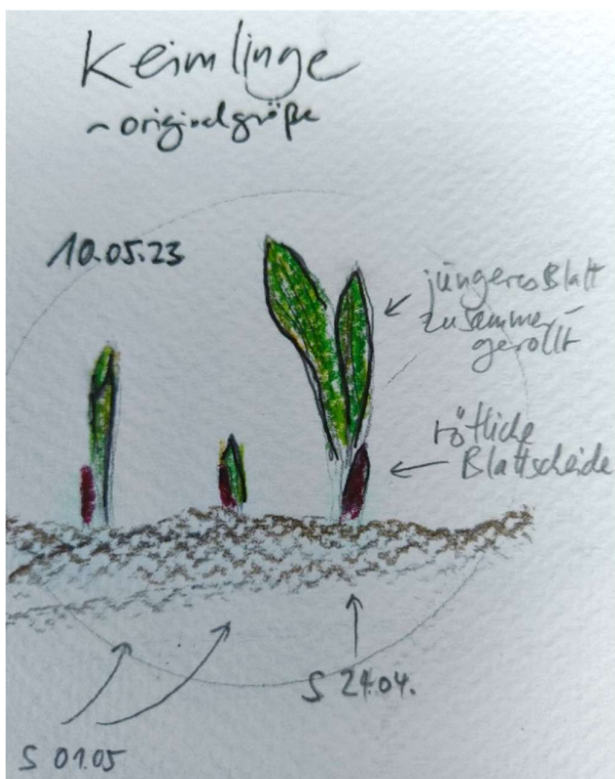 Keimlinge
~ originalgröße
10.05.23
jüngeres Blatt
zusammen-
gerollt
rötliche
Blattscheide
S 24.04.
S 01.05